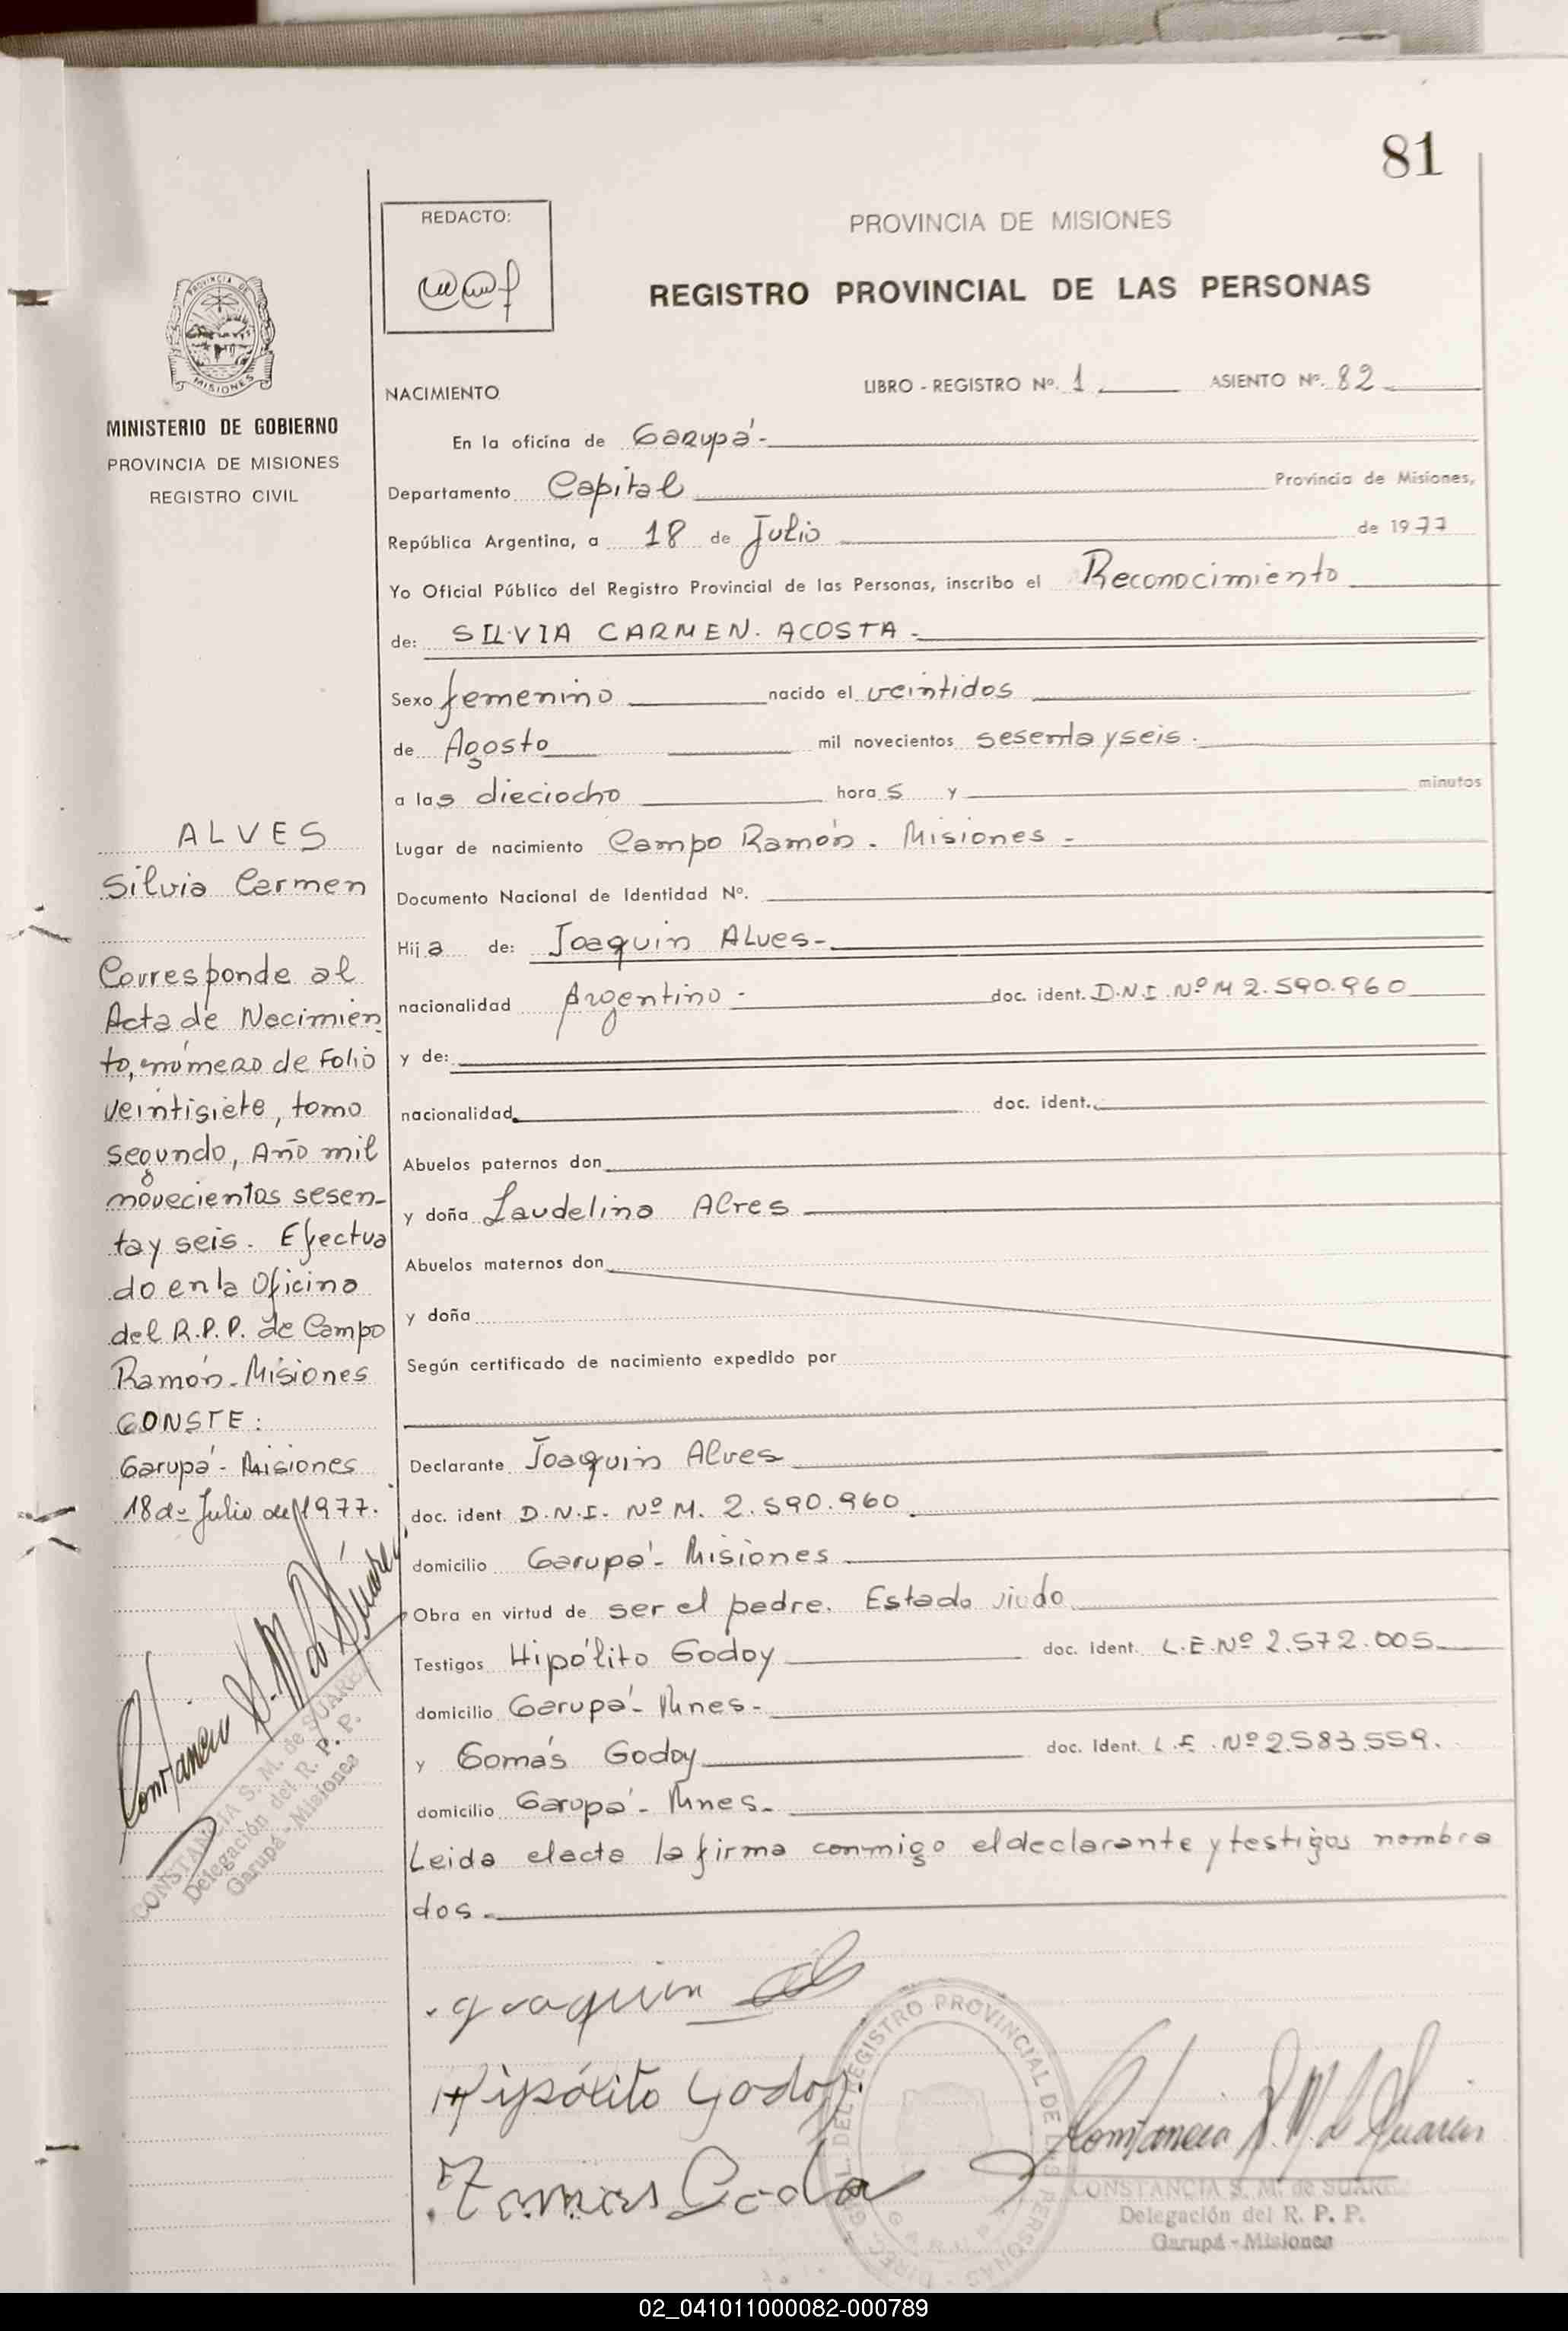 81
REDACTO:
PROVINCIA DE MISIONES
REGISTRO PROVINCIAL DE LAS PERSONAS
PROVINCIA DE
MISIONES
MINISTERIO DE GOBIERNO
PROVINCIA DE MISIONES
REGISTRO CIVIL
NACIMIENTO LIBRO - REGISTRO Nº. 1 ASIENTO Nº. 82
En la oficina de Garupá-
Departamento Capital Provincia de Misiones,
República Argentina, a 18 de Julio de 1977
Yo Oficial Público del Registro Provincial de las Personas, inscribo el Reconocimiento
de: SILVIA CARMEN. ACOSTA-
Sexo femenino nacido el veintidos
de Agosto mil novecientos sesenta y seis.
a las dieciocho horas y minutos
Lugar de nacimiento Campo Ramón. Misiones-
Documento Nacional de Identidad Nº.
Hija de: Joaquin Alves-
nacionalidad Argentino- doc. ident. D.N.I. Nº M 2.590.960
y de:
nacionalidad doc. ident.
Abuelos paternos don
y doña Laudelina Alves
Abuelos maternos don
y doña
Según certificado de nacimiento expedido por
Declarante Joaquin Alves
doc. ident D.N.I. Nº M. 2.590.960
domicilio Garupá- Misiones
Obra en virtud de ser el padre. Estado viudo
Testigos Hipólito Godoy doc. Ident. L.E. Nº 2.572.005
domicilio Garupá- Mnes-
y Tomás Godoy doc. Ident. L.E. Nº 2583.559.
domicilio Garupá- Mnes-
Leida elacta la firma conmigo eldeclarante y testigos nombra
dos-
ALVES
Silvia Carmen
Corresponde al
Acta de Nacimien
to, número de Folio
veintisiete, tomo
segundo, Año mil
novecientos sesen-
ta y seis. Efectua
do en la Oficina
del R.P.P. de Campo
Ramón- Misiones
CONSTE:
Garupá- Misiones
18 de Julio de 1977.
Constancia S. M. de Suárez
CONSTANCIA S. M. de SUAREZ
Delegación del R. P. P.
Garupá - Misiones
Joaquin
Hipólito Godoy.
Tomas Godo
DEL REGISTRO PROVINCIAL DE LAS PERSONAS
Constancia S. M. de Suarez
CONSTANCIA S. M. de SUAREZ
Delegación del R. P. P.
Garupá - Misiones
02_041011000082-000789